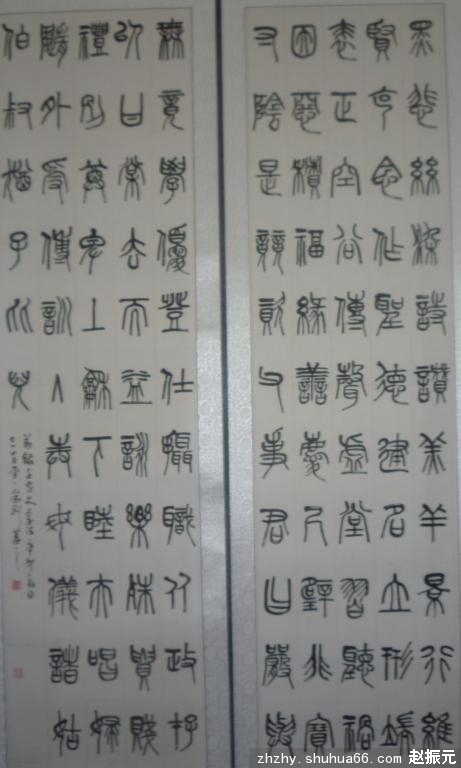 墨悲絲染詩讚羔羊景行維
賢克念作聖德建名立形端
表正空谷傳聲虛堂習聽禍
因惡積福緣善慶尺璧非寶
寸陰是競資父事君曰嚴與
無竟學優登仕攝職从政存
以甘棠去而益詠樂殊貴賤
禮別尊卑上龢下睦夫唱婦
隨外受傅訓入奉母儀諸姑
伯叔猶子比兒
zhzhy.shuhua66.com 赵振元